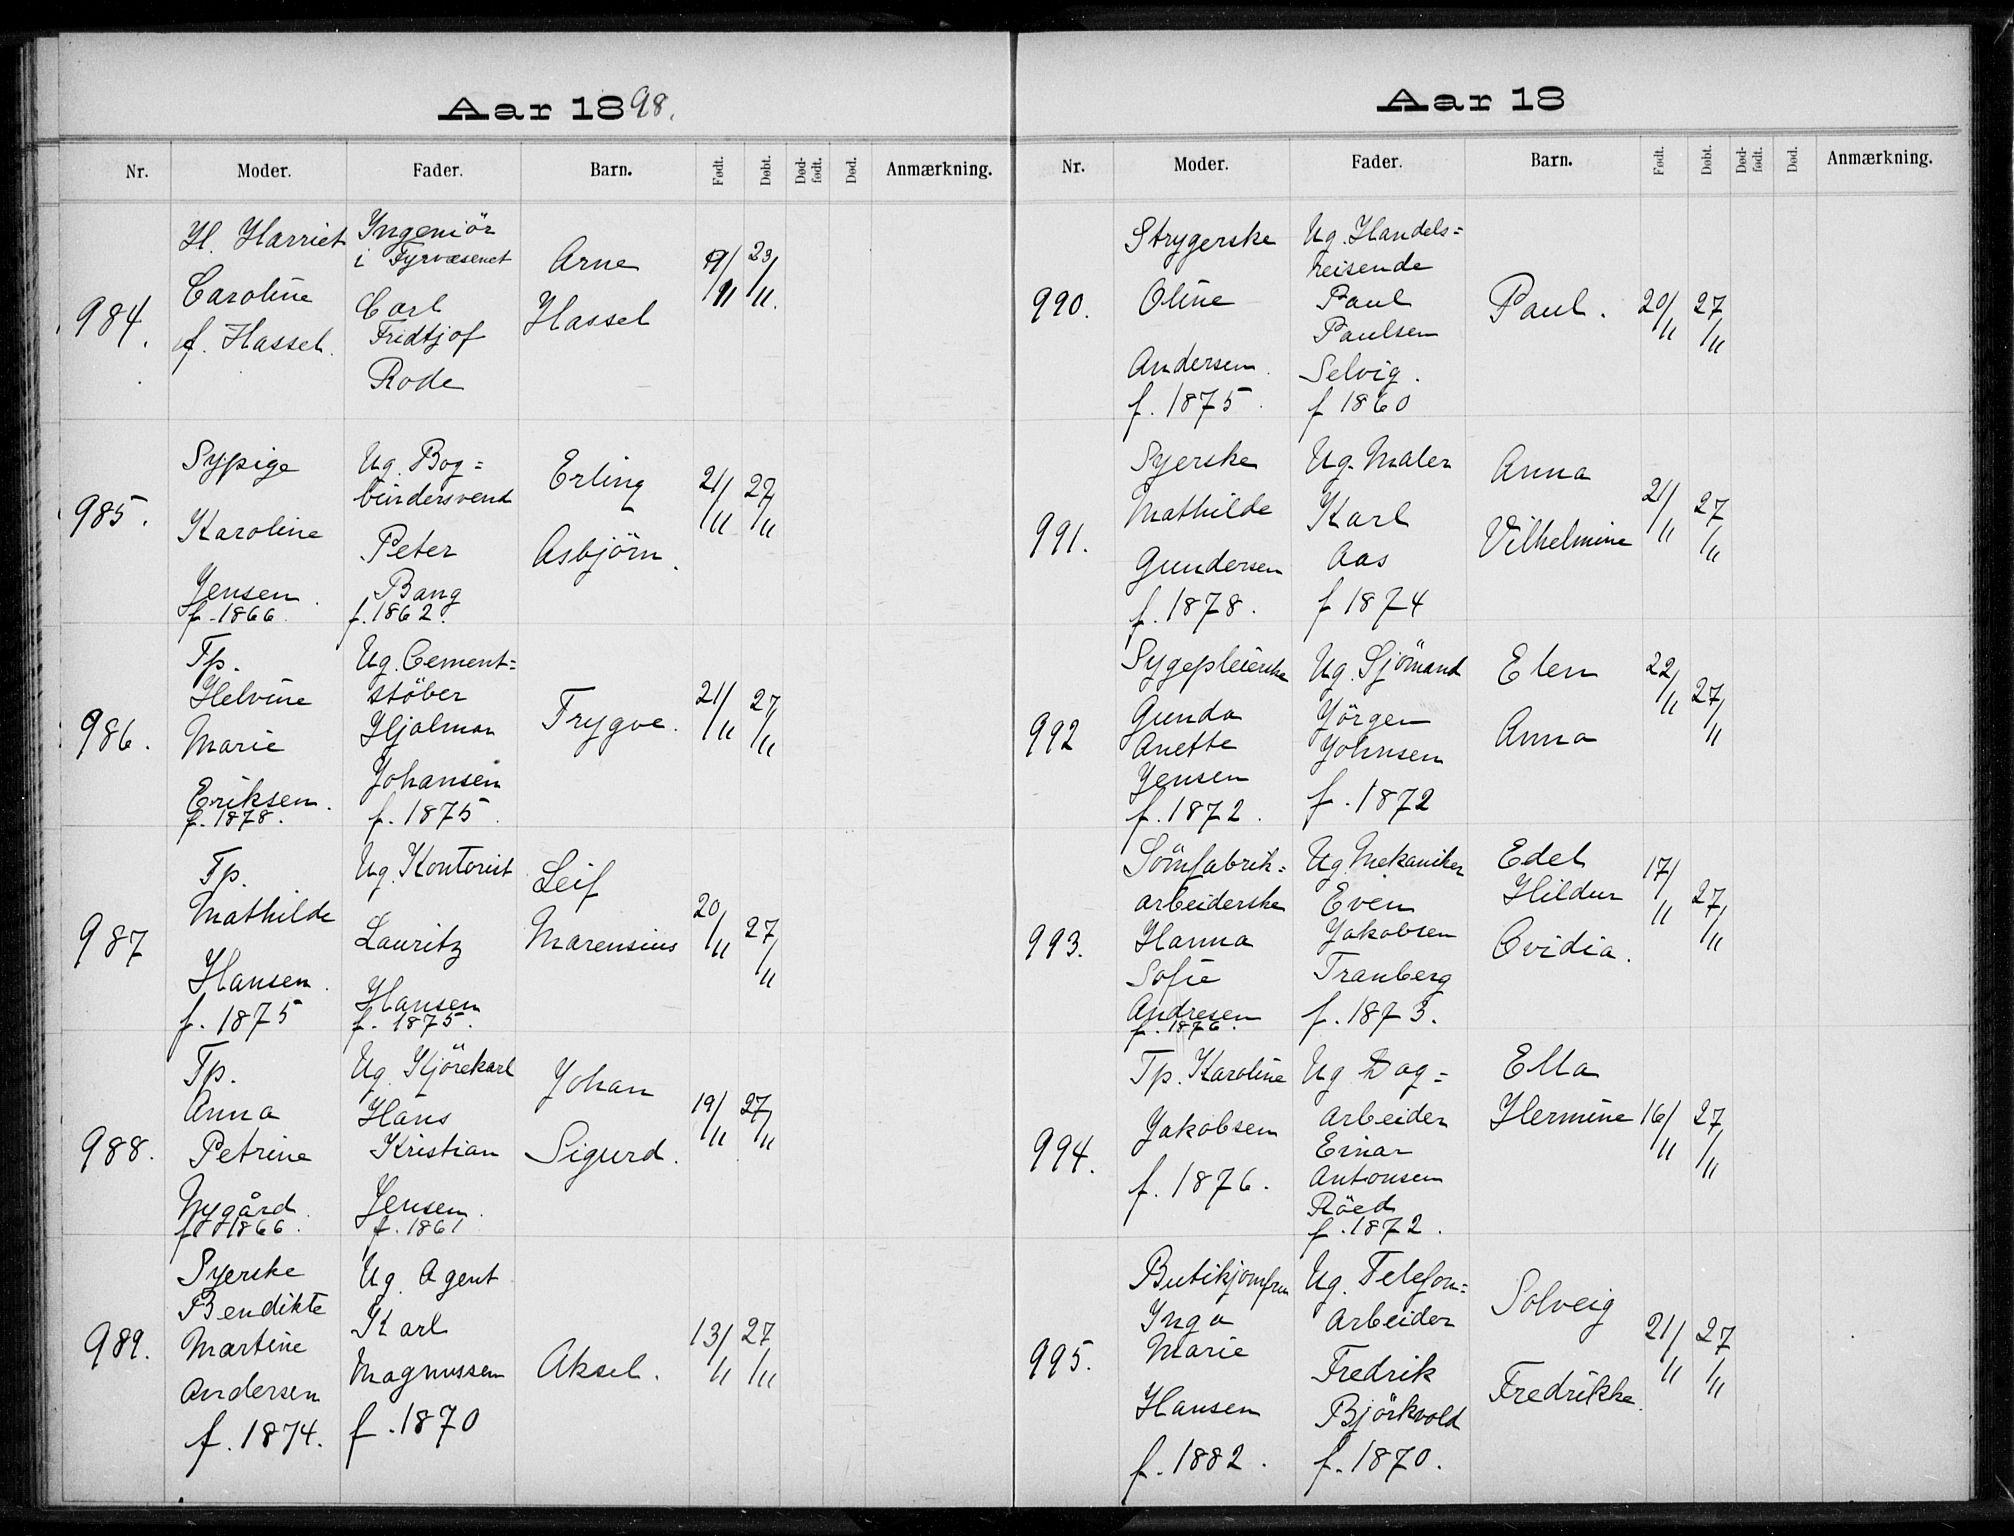 Aar 1898.
Nr. Moder. Fader. Barn. Født. Døbt. Død-født. Død. Anmærkning.
984.
H. Harriet
Caroline
f. Hassel.
Ingeniör
i Fyrvæsenet
Carl
Fridtjof
Rode
Arne
Hassel
9/11 23/11.
985.
Sypige
Karoline
Jensen.
f. 1866.
Ug. Bog=
bindersvend
Peter
Bang
f. 1862.
Erling
Asbjörn.
21/11 27/11
986.
Tp.
Helvine
Marie
Eriksen.
f. 1878.
Ug. Cement=
stöber
Hjalmar
Johansen
f. 1875.
Trygve.
21/11 27/11
987
Tp.
Mathilde
Hansen.
f. 1875
Ug. Kontorist
Lauritz
Hansen
f. 1875.
Leif
Marensius
20/11 27/11
988.
Tp.
Anna
Petrine
Nygård.
f. 1866.
Ug. Kjörekarl
Hans
Kristian
Jensen.
f. 1861
Johan
Sigurd.
19/11 27/11
989.
Syerske
Bendikte
Martine
Andersen
f. 1874.
Ug. Agent
Karl
Magnussen
f. 1870
Aksel.
13/11 27/11
Aar 18
Nr. Moder. Fader. Barn. Født. Døbt. Død-født. Død. Anmærkning.
990.
Strygerske
Oline
Andersen.
f. 1875.
Ug. Handels=
reisende
Paul
Paulsen
Selvig.
f 1860
Paul.
20/11 27/11
991.
Syerske
Mathilde
Gundersen
f. 1878.
Ug. Maler
Karl
Aas
f 1874
Anna
Vilhelmine
21/11 27/11
992
Sygepleierske
Gunda
Anette
Jensen
f. 1872.
Ug. Sjömand
Jörgen
Johnsen
f. 1872
Elen
Anna
22/11 27/11
993.
Sömfabrik=
arbeiderske
Hanna
Sofie
Andresen
f. 1876.
Ug. Mekaniker
Even
Jakobsen
Tranberg
f. 1873.
Edel
Hildur
Ovidia.
17/11 27/11
994.
Tp. Karoline
Jakobsen
f. 1876.
Ug Dag=
arbeider
Einar
Antonsen
Röed
f. 1872.
Ella
Hermine
16/11 27/11
995.
Butikjomfru
Inga
Marie
Hansen
f. 1882.
Ug. Telefon=
arbeider
Fredrik
Björkvold
f. 1870.
Solveig
Fredrikke.
21/11 27/11